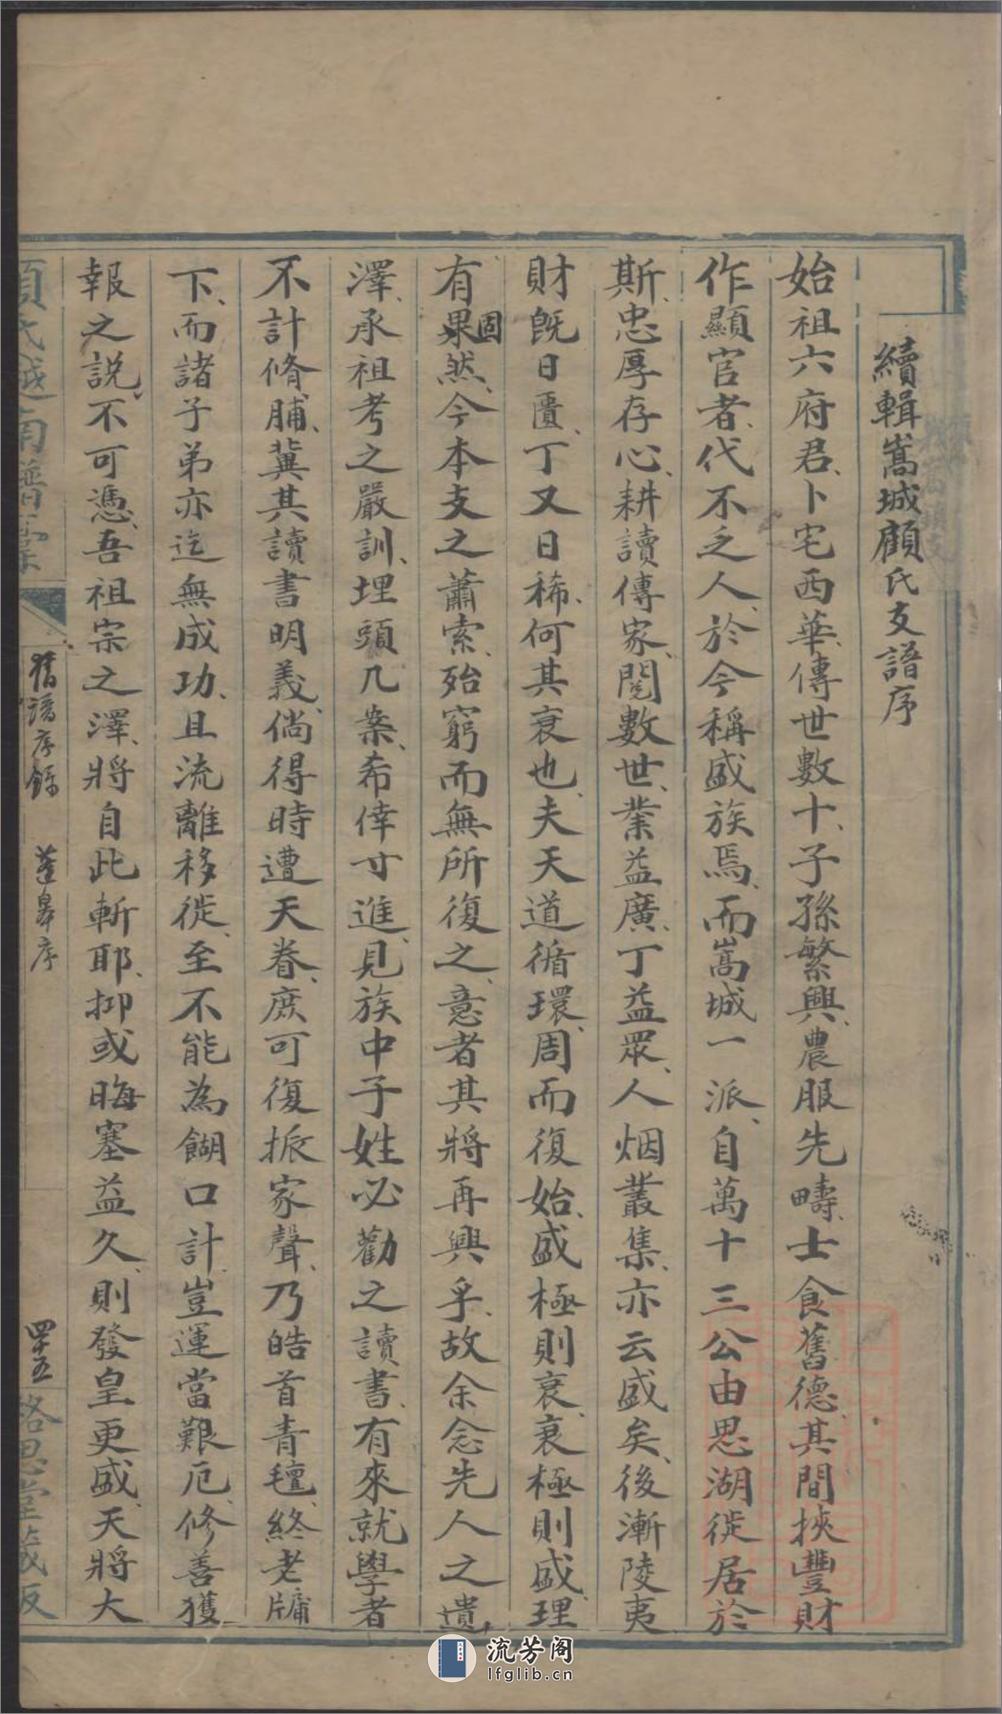 續輯嵩城顧氏支譜序
始祖六府君、卜宅西華、傳世數十、子孫繁興、農服先疇、士食舊德、其間挾豐財
作顯宦者、代不乏人、於今稱盛族焉、而嵩城一派、自萬十三公由思湖徙居於
斯、忠厚存心、耕讀傳家、閱數世、業益廣、丁益眾、人烟叢集、亦云盛矣、後漸陵夷
財旣日匱、丁又日稀、何其衰也、夫天道循環、周而復始、盛極則衰、衰極則盛、理
有固果然、今本支之蕭索、殆窮而無所復之、意者其將再興乎、故余念先人之遺
澤、承祖考之嚴訓、埋頭几案、希倖寸進、見族中子姓必勸之讀書、有來就學者
不計脩脯、冀其讀書明義、倘得時遭天眷、庶可復振家聲、乃皓首青氊、終老牖
下、而諸子弟亦迄無成功、且流離移徙、至不能為餬口計、豈運當艱厄、修善獲
報之說、不可憑、吾祖宗之澤、將自此斬耶、抑或晦塞益久、則發皇更盛、天將大
顧氏越南譜彙
舊譜序錄 蓬皋序
四十五
恪思堂藏版
流芳阁
lfglib.cn